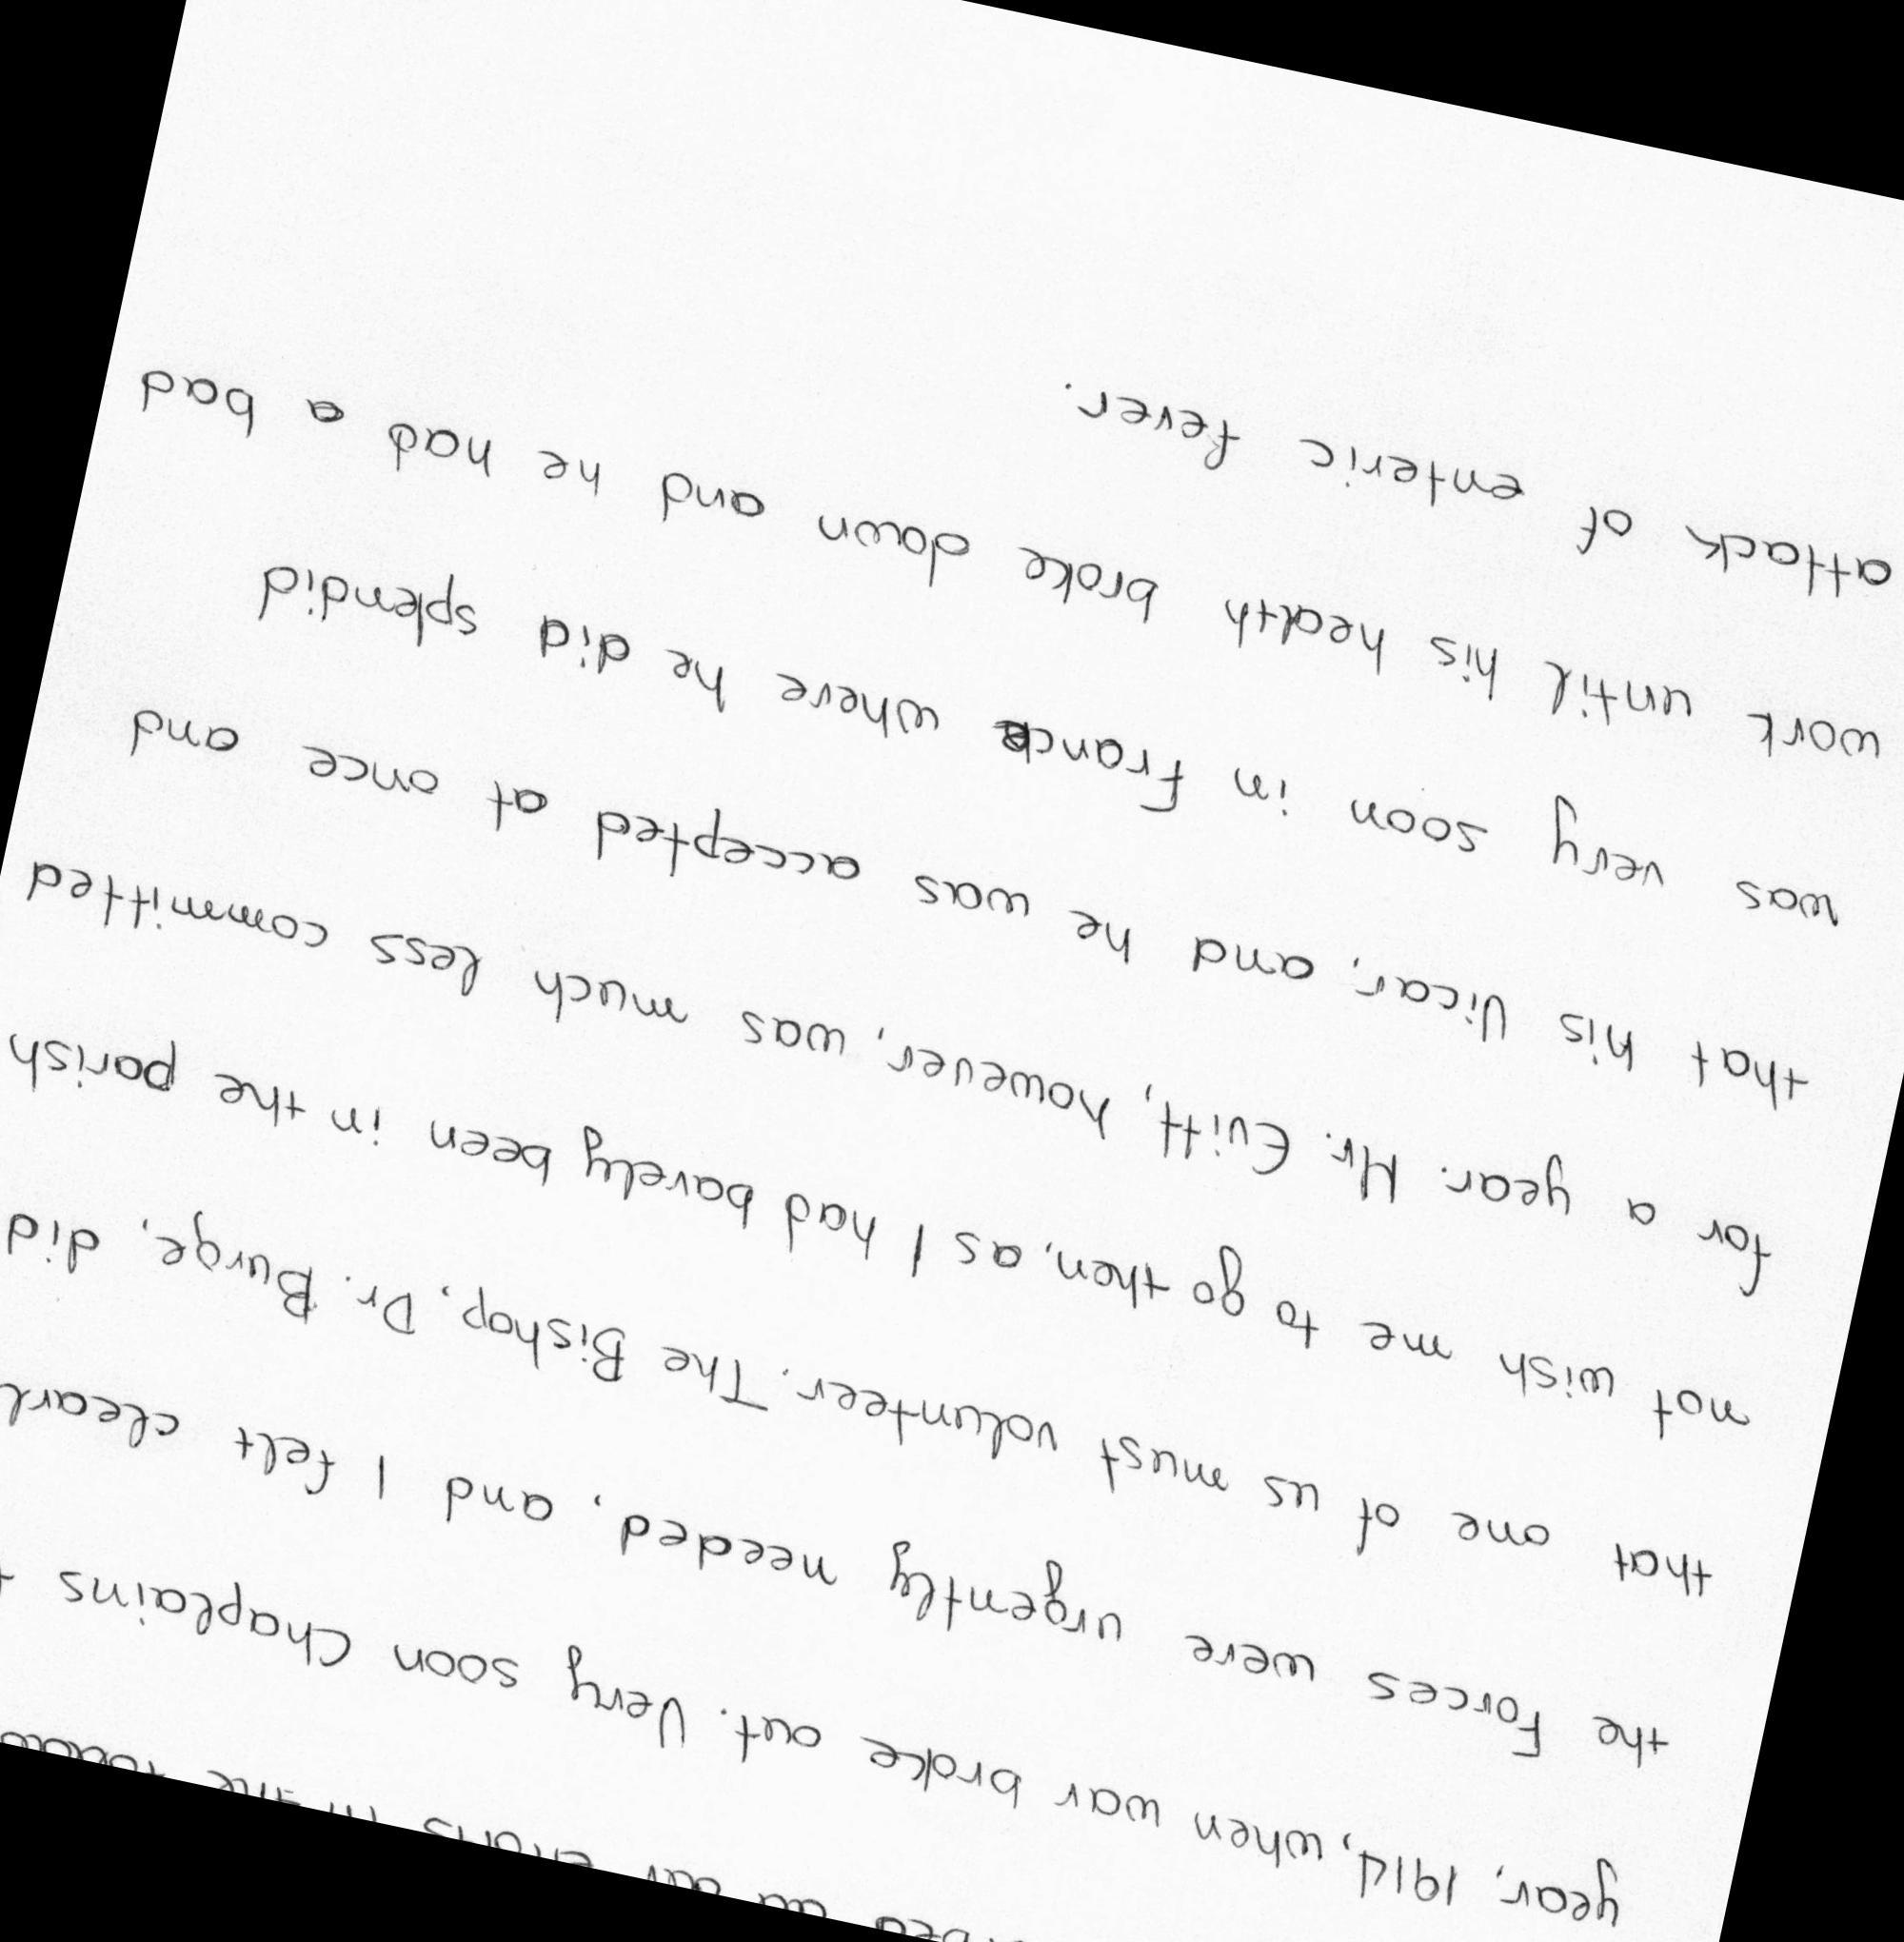 all our efforts in the
year, 1914, when war broke out. Very soon Chaplains
the Forces were urgently needed, and I felt
that one of us must volunteer. The Bishop, Dr. Burge, did
not wish me to go then, as I had barely been in the parish
for a year. Mr. Evitt, however, was much less committed
that his Vicar, and he was accepted at once and
was very soon in France where he did splendid
work until his health broke down and he had a bad
attack of enteric fever.